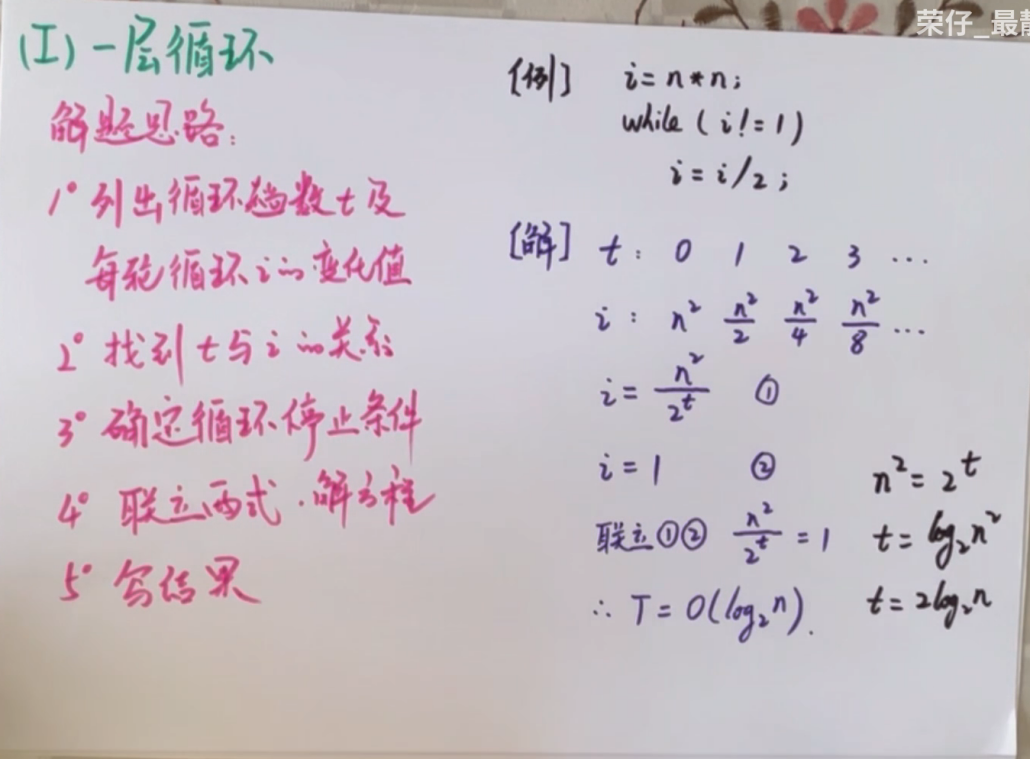 荣仔_最靓
(I) 一层循环
解题思路:
1° 列出循环趟数t及
每轮循环i的变化值
2° 找到t与i的关系
3° 确定循环停止条件
4° 联立两式,解方程
5° 写结果
[例] i=n*n;
while(i!=1)
i=i/2;
[解] t: 0 1 2 3 ...
i: n² n²/2 n²/4 n²/8 ...
i=n²/2^t ①
i=1 ②
联立①② n²/2^t=1
∴ T=O(log₂n).
n²=2^t
t=log₂n²
t=2log₂n